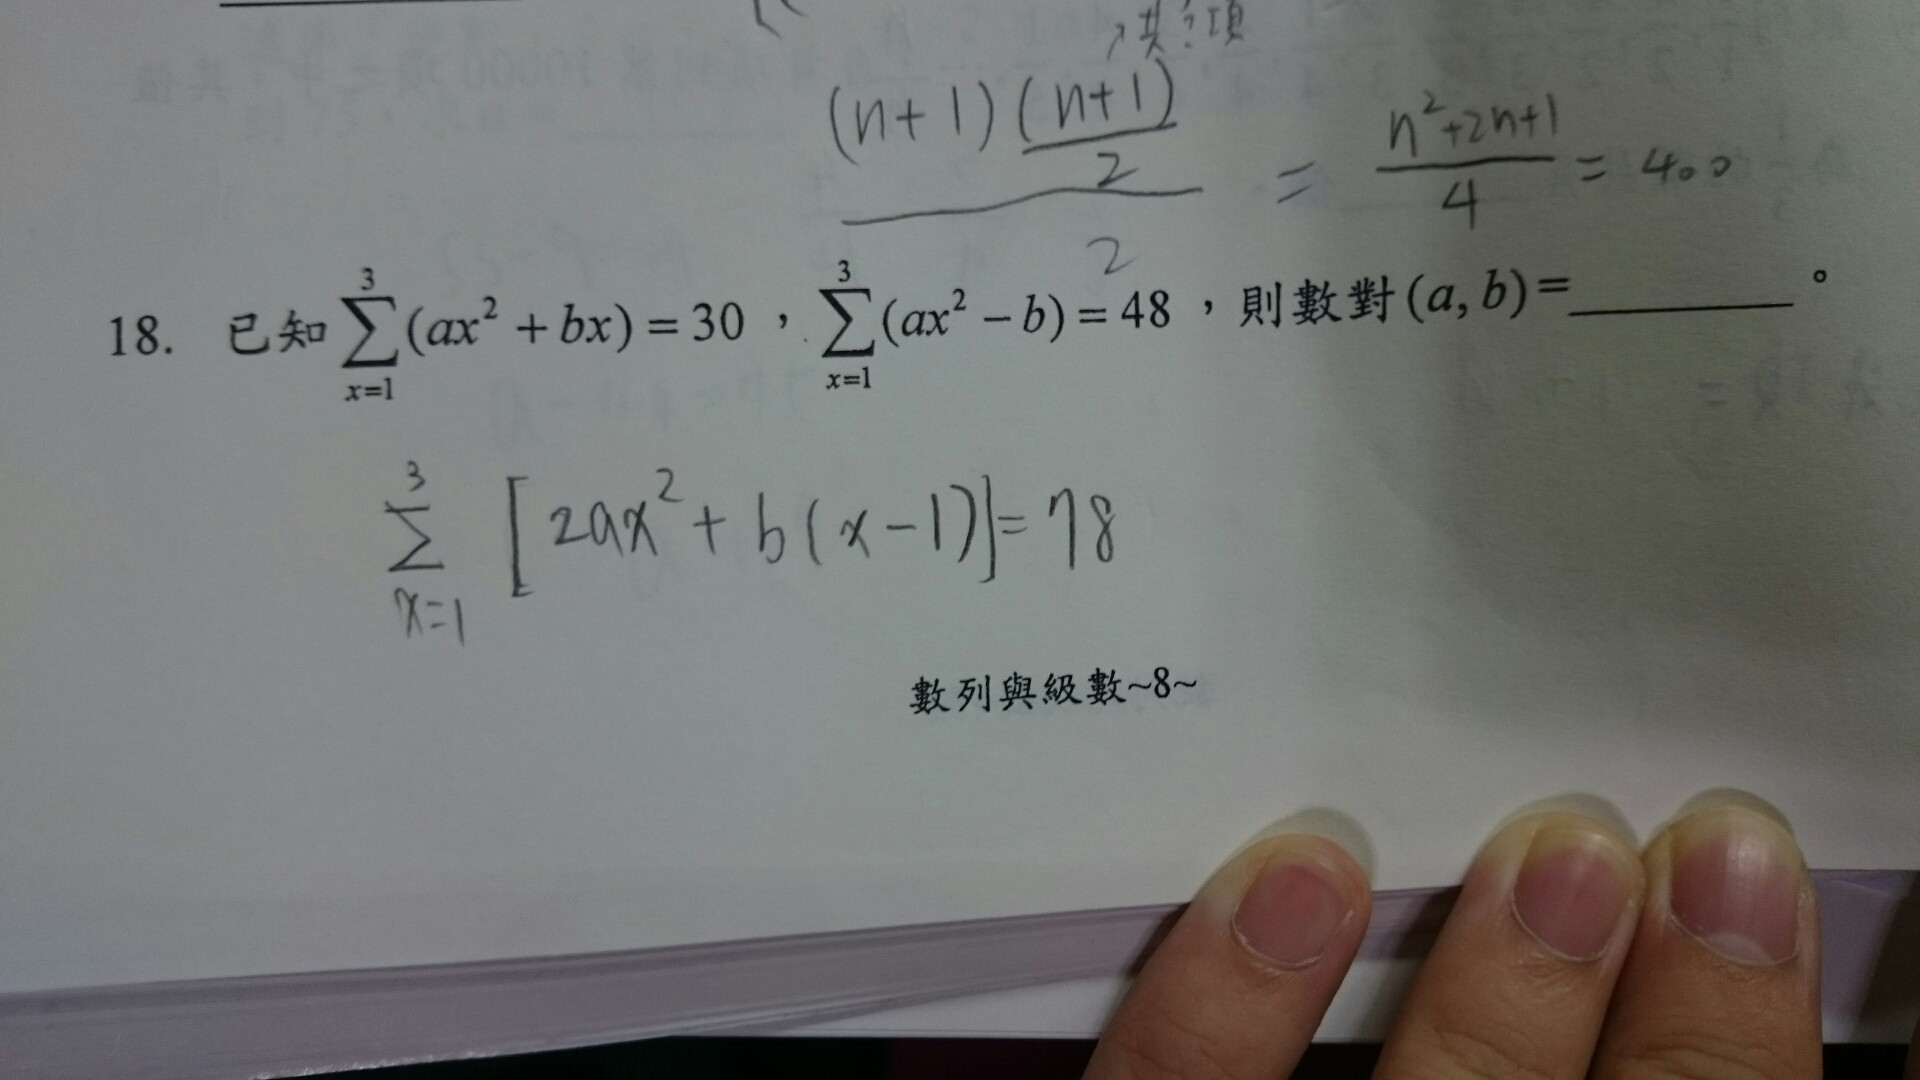 ↗共?項
(n+1)(n+1)/2 / 2 = n²+2n+1 / 4 = 400
18. 已知 ∑_{x=1}^{3}(ax² + bx) = 30，∑_{x=1}^{3}(ax² − b) = 48，則數對(a, b)=________。
∑_{x=1}^{3} [2ax² + b(x−1)] = 78
數列與級數~8~